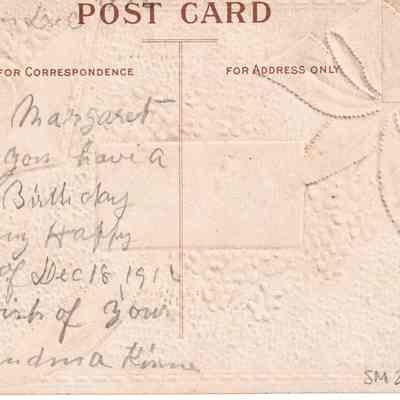 Dec
POST CARD
FOR CORRESPONDENCE
FOR ADDRESS ONLY
Margaret
you have a
Birthday
ny Happy
of Dec 18, 1911
ish of Your
andma Kinne
SM 2